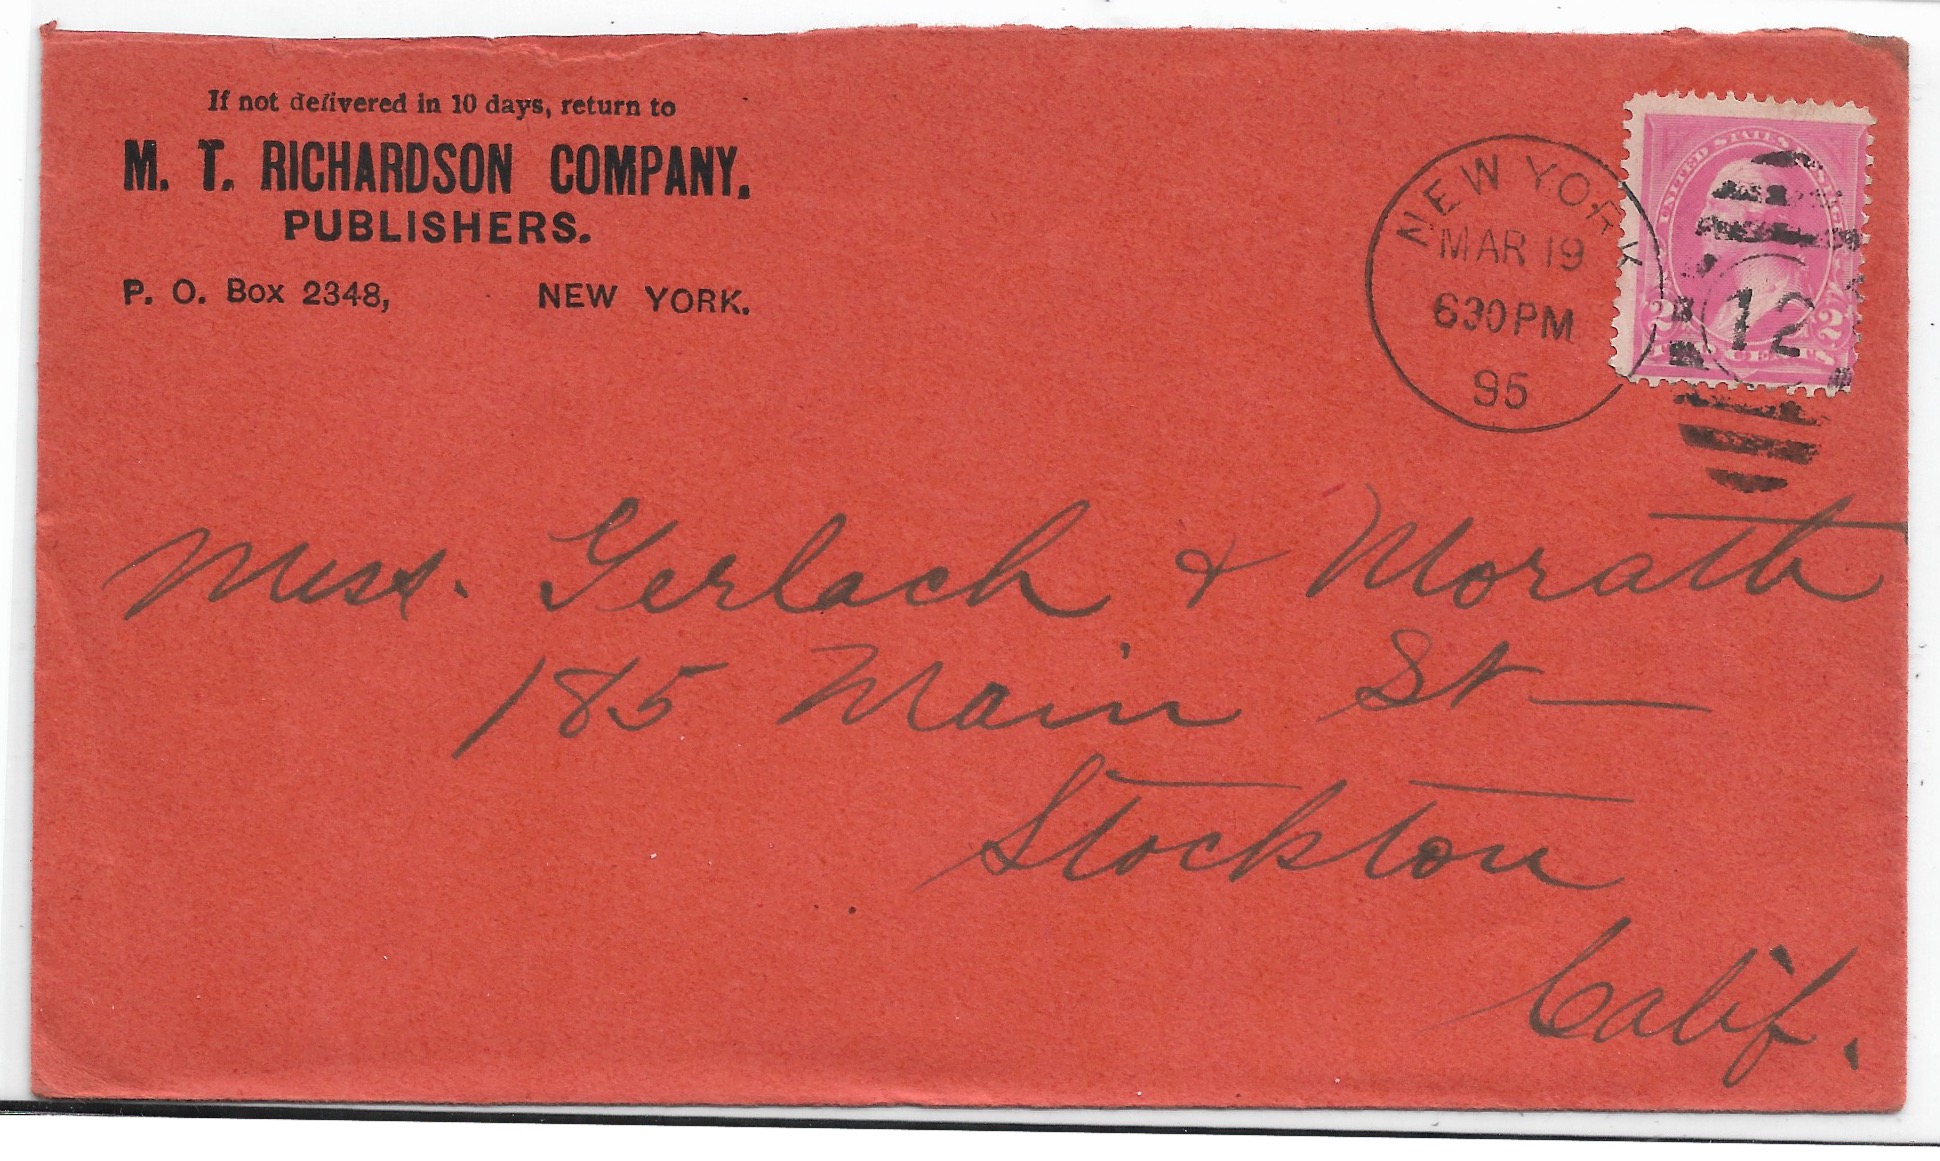 If not delivered in 10 days, return to
M. T. RICHARDSON COMPANY,
PUBLISHERS.
P. O. Box 2348, NEW YORK.
NEW YORK
MAR 19
630PM
95
12
UNITED STATES POSTAGE
2 2
TWO CENTS
Mess. Gerlach & Morath
185 Main St
Stockton
Calif.